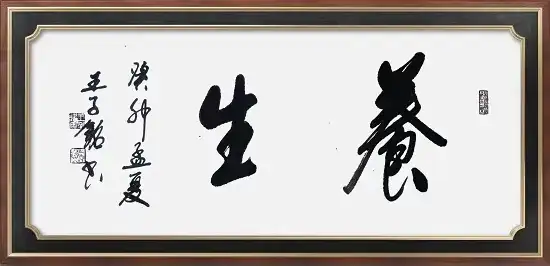 養生
癸卯孟夏
王子銘书